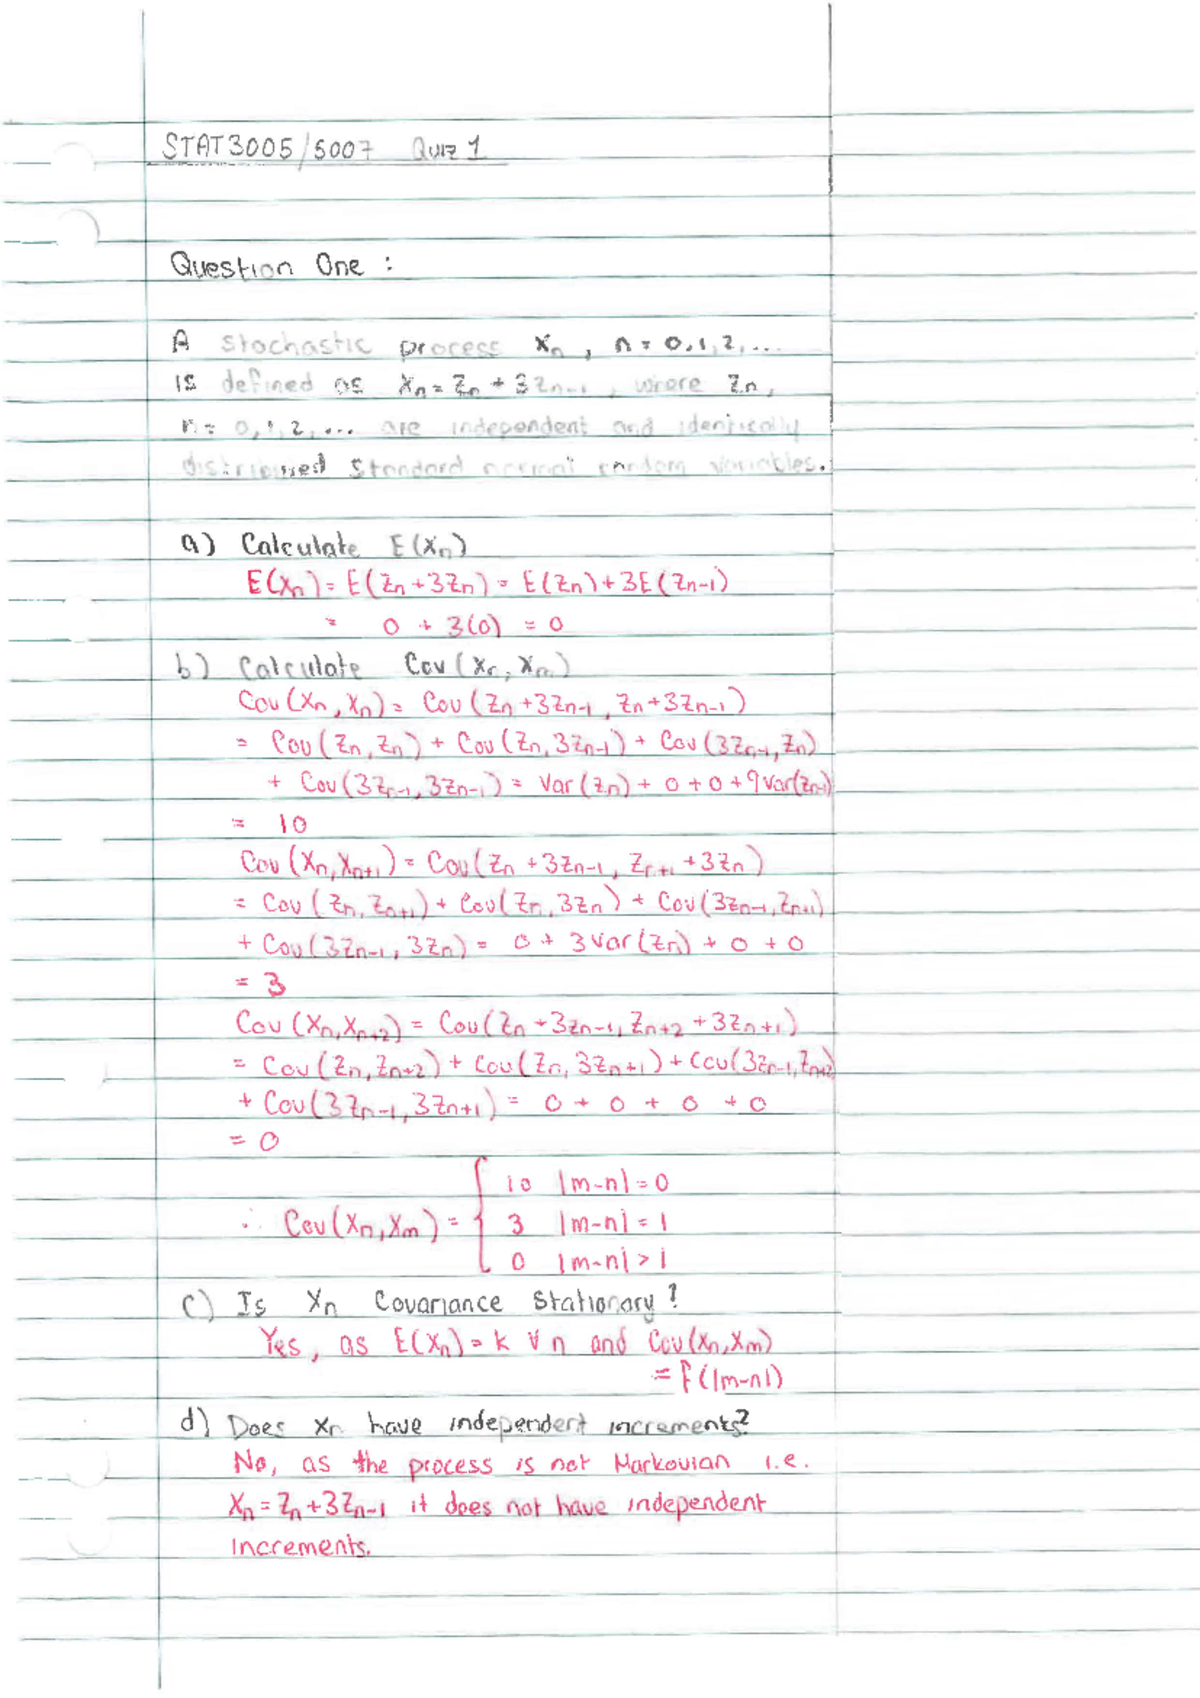 STAT3005/5007 Quiz 1
Question One :
A stochastic process Xn , n = 0,1,2,...
is defined as Xn = Zn + 3Zn-1 , where Zn,
n = 0,1,2,... are independent and identically
distributed standard normal random variables.
a) Calculate E(Xn)
E(Xn) = E(Zn + 3Zn) = E(Zn) + 3E(Zn-1)
= 0 + 3(0) = 0
b) Calculate Cov(Xn, Xm)
Cov(Xn, Xn) = Cov(Zn + 3Zn-1, Zn + 3Zn-1)
= Cov(Zn, Zn) + Cov(Zn, 3Zn-1) + Cov(3Zn-1, Zn)
+ Cov(3Zn-1, 3Zn-1) = Var(Zn) + 0 + 0 + 9Var(Zn-1)
= 10
Cov(Xn, Xn+1) = Cov(Zn + 3Zn-1, Zn+1 + 3Zn)
= Cov(Zn, Zn+1) + Cov(Zn, 3Zn) + Cov(3Zn-1, Zn+1)
+ Cov(3Zn-1, 3Zn) = 0 + 3Var(Zn) + 0 + 0
= 3
Cov(Xn, Xn+2) = Cov(Zn + 3Zn-1, Zn+2 + 3Zn+1)
= Cov(Zn, Zn+2) + Cov(Zn, 3Zn+1) + Cov(3Zn-1, Zn+2)
+ Cov(3Zn-1, 3Zn+1) = 0 + 0 + 0 + 0
= 0
10 |m-n| = 0
∴ Cov(Xn, Xm) = { 3 |m-n| = 1
0 |m-n| > 1
c) Is Xn Covariance Stationary?
Yes, as E(Xn) = k ∀ n and Cov(Xn, Xm)
= f(|m-n|)
d) Does Xn have independent increments?
No, as the process is not Markovian i.e.
Xn = Zn + 3Zn-1 it does not have independent
increments.